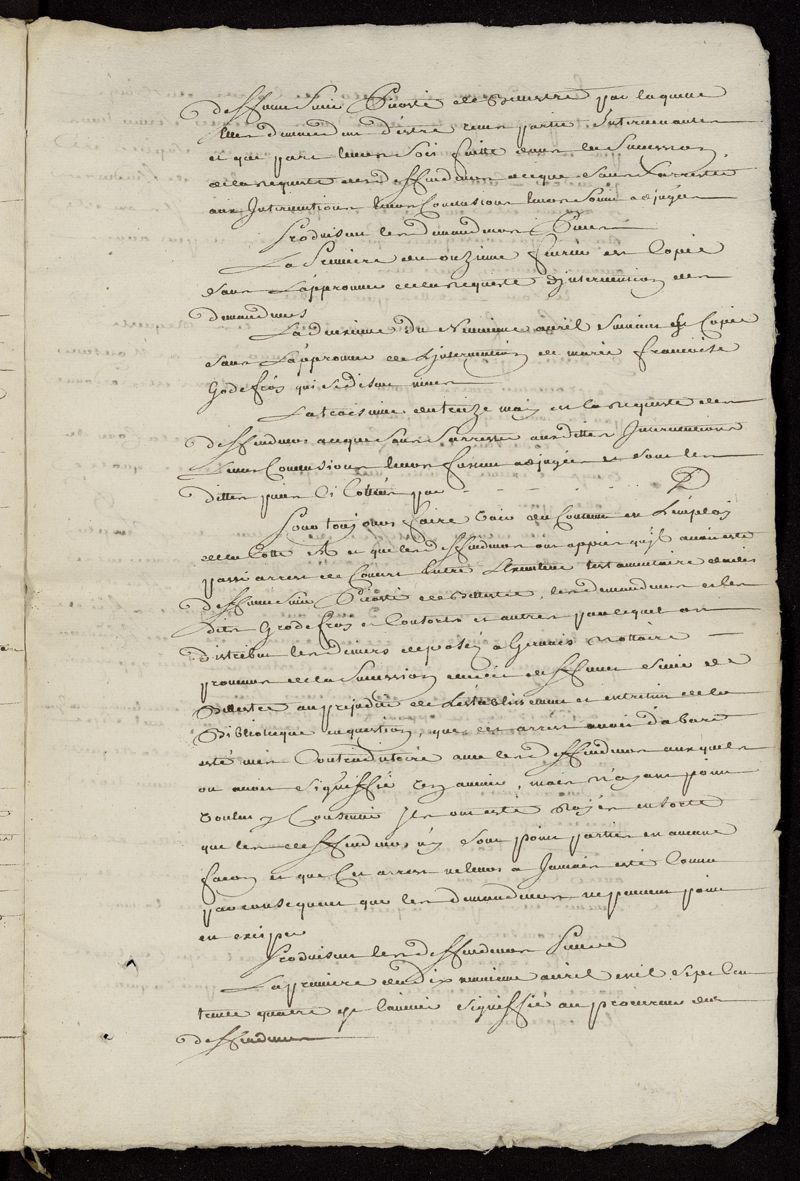 deffunt Sieur Picoté de Belestre par laquelle
Elles demandent d'estre receus partie Intervenantes
et que part leurs soit faitte dans la Succession
de la requeste des deffendeurs ace que sans s'arrester
aux Interventions leurs Conclusions leurs Soient adjugées
Produisent les demandeurs Pieces
La Premiere du onzieme fevrier est Copie
sans l'approuver de la requeste d'jntervention des
demandeurs
La deuxieme du Neuvieme avril Suivant est Copie
sans l'approuver de L'jntervention de marie francoise
Godefroy qui se disent
La troisieme du treize may est la requeste des
deffendeurs ace que sans s'arrester aux dittes Interventions
Leurs Conclusions leurs fussent adjugées et sont les
dittes pieces Ci Cottées par D
Pour toujours faire voir du Contenu en L'employ
de la Cotte et que les deffendeurs ont appris qu'jl avoit esté
passé arrest de Concert entre L'executeur testamentaire dudit
deffunt Sieur Picoté de Belestre, les demandeurs et les
dits Godefroy et Consorts et autres par lequel on
distribue les deniers deposéz a Gervais Nottaire
provenus de la Succession dudit deffunt Sieur de
Belestre au prejudice de L'establissement et entretien de la
Bibliotheque en question, que cet arrest avoit d'abord
esté mis Contradictoire avec les deffendeurs auxquels
on avoit Signiffié, mais n'ayant point
voulu y Consentir jls ont esté Rayés en sorte
que les deffendeurs n'y sont point parties en aucune
facon et que Cet arrest ne leurs a Jamais esté Connu
par consequent que les demandeurs ne peuvent point
en exciper
Produisent les deffendeurs Pieces
La premiere du Dix neuvieme avril mil Sept Cent
trente quatre est l'avenir Signiffié au procureur des
deffendeurs